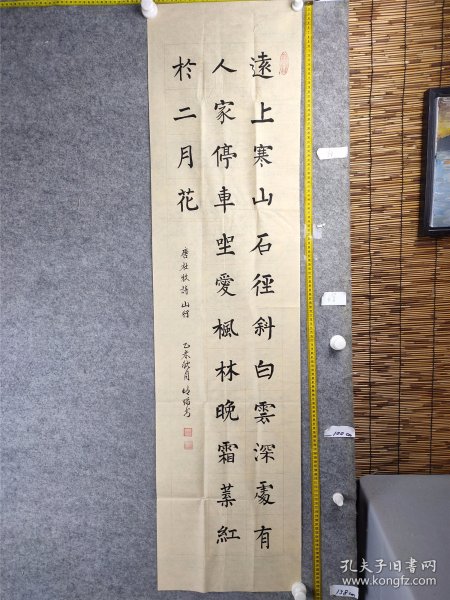 遠上寒山石徑斜白雲深處有
人家停車坐愛楓林晚霜葉紅
於二月花
唐杜牧詩山行
乙未秋月
100cm
138cm
孔夫子旧书网
www.kongfz.com